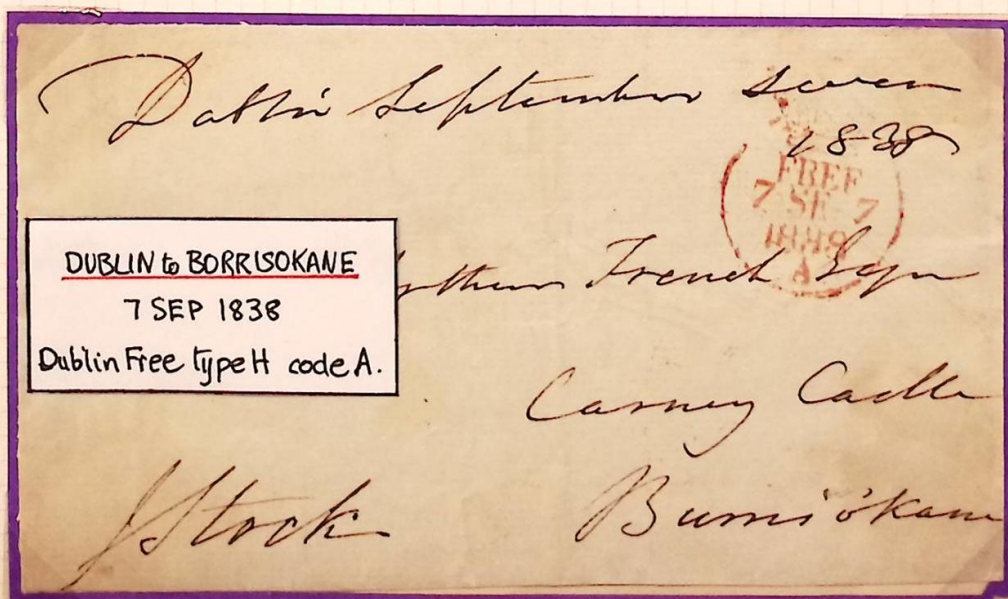 Dublin September seven
1838
FREE
7 SE 7
1838
A
DUBLIN to BORRISOKANE
7 SEP 1838
Dublin Free type H code A.
French Esqr
Carney Castle
Burrisokane
JStock